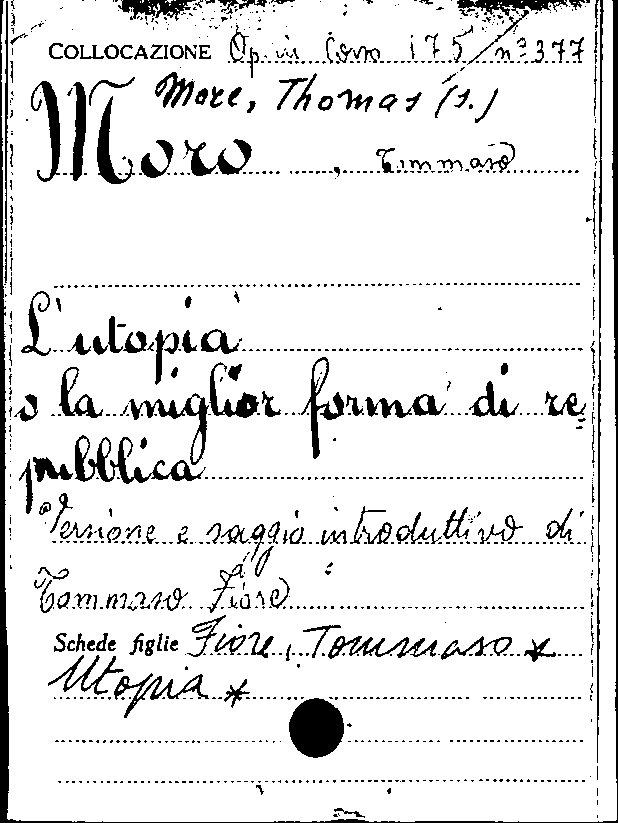 COLLOCAZIONE Op. in Corso 175 nº 377
More, Thomas (s.)
Moro, Tommaso
L'utopia
o la miglior forma di re-
pubblica
Versione e saggio introduttivo di
Tommaso Fiore
Schede figlie Fiore, Tommaso *
Utopia *